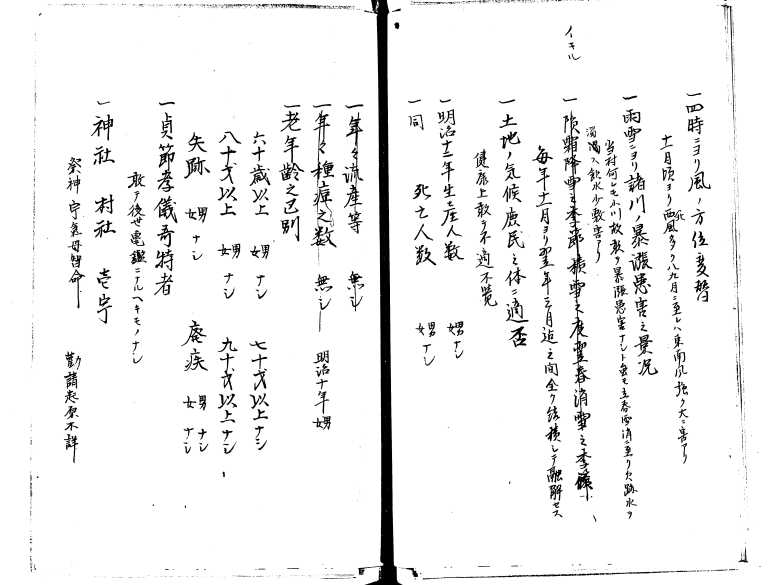 イキル
一四時ニヨリ風ノ方位変替
十一月頃ヨリ西風多ク八九月ニ至レハ東南風強ク大ニ害アリ
一雨雪ニヨリ諸川ノ暴漲患害之景况
当村何レモ小川故敢テ暴漲患害ナシト雖モ立春雪消ニ至リ欠跡水ノ
溷濁ス飲水少敷害アリ
一隕霜降雪之季節積雪之度翌春消雪之季候
毎年十一月ヨリ翌年三月迄之间全ク結積シテ融解セス
一土地ノ気候庶民之体ニ適否
健康上敢テ不適不覚
一明治十一年生産人数 男女ナシ
一同 死亡人数 男女ナシ
一年々流産等 無シ
一年々種痘之数 無シ 明治十年 男女
一老年齢之区別
六十歳以上 男女ナシ 七十才以上ナシ
八十才以上 男女ナシ 九十才以上ナシ
失跡 男女ナシ 癈疾 男ナシ女ナシ
一貞節孝儀奇特者
敢テ後世亀鑑ニナルヘキモノナシ
一神社 村社 壱宇
祭神 宇気母智命 勧請起原不詳